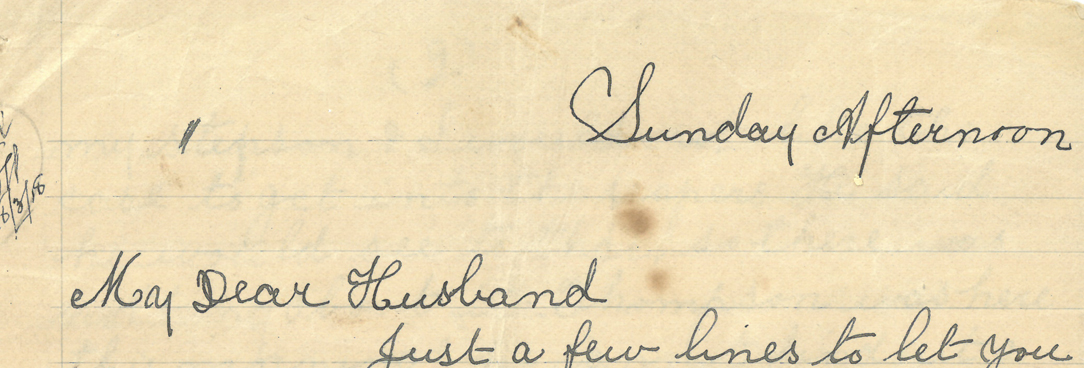 Sunday Afternoon
"
My Dear Husband
Just a few lines to let you